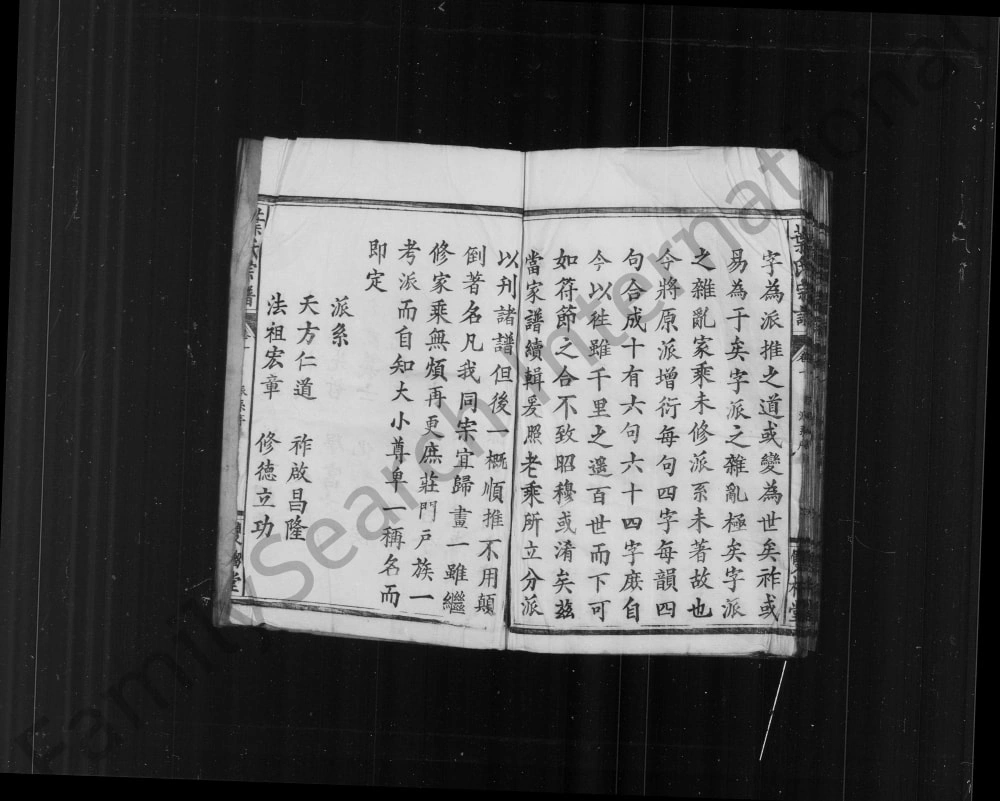 字為派推之道或變為世矣祚或
易為于矣字派之雜亂極矣字派
之雜亂家乘未修派系未著故也
今將原派增衍每句四字每韻四
句合成十有六句六十四字庶自
今以徃雖千里之遙百世而下可
如符節之合不致昭穆或淆矣茲
當家譜續輯爰照老乘所立分派
以刋諸譜但後一概順推不用顛
倒著名凡我同宗宜歸畫一雖繼
修家乘無煩再更庶莊門戸族一
考派而自知大小尊卑一稱名而
即定
派系
天方仁道 祚啟昌隆
法祖宏章 修德立功
葉氏宗譜
FamilySearch International